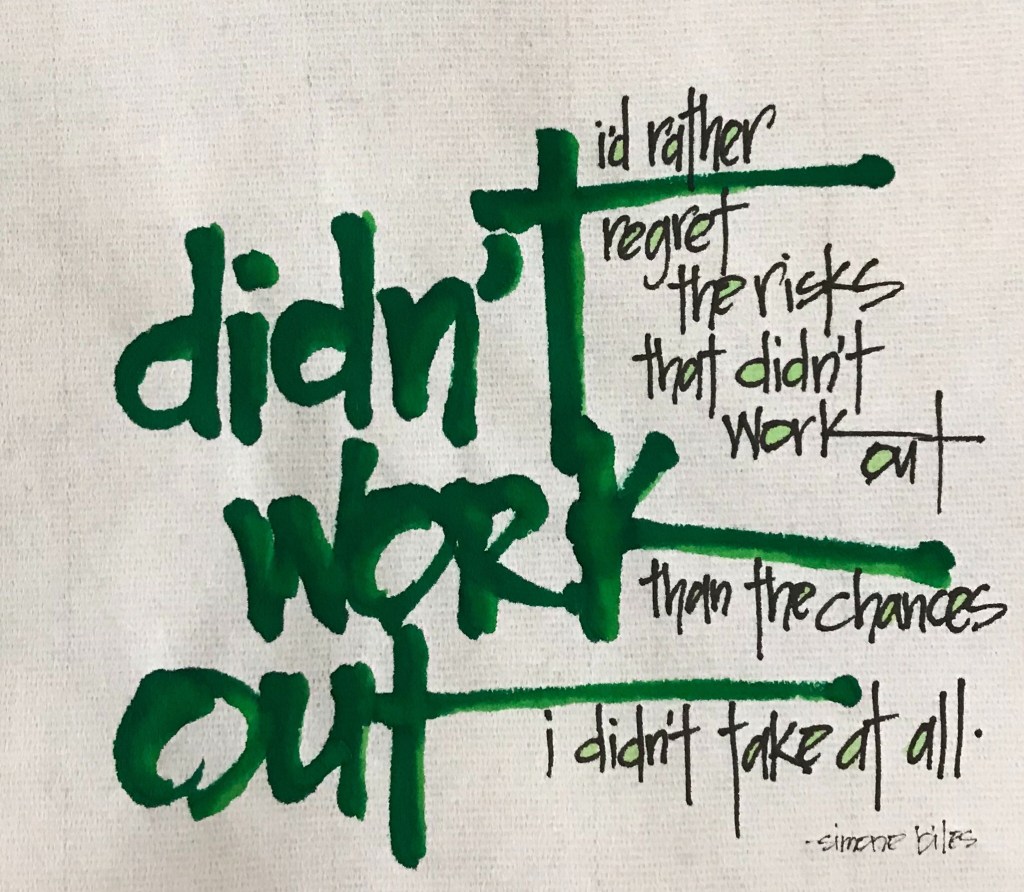 didn't
work
out
i'd rather
regret
the risks
that didn't
work out
than the chances
i didn't take at all.
-simone biles